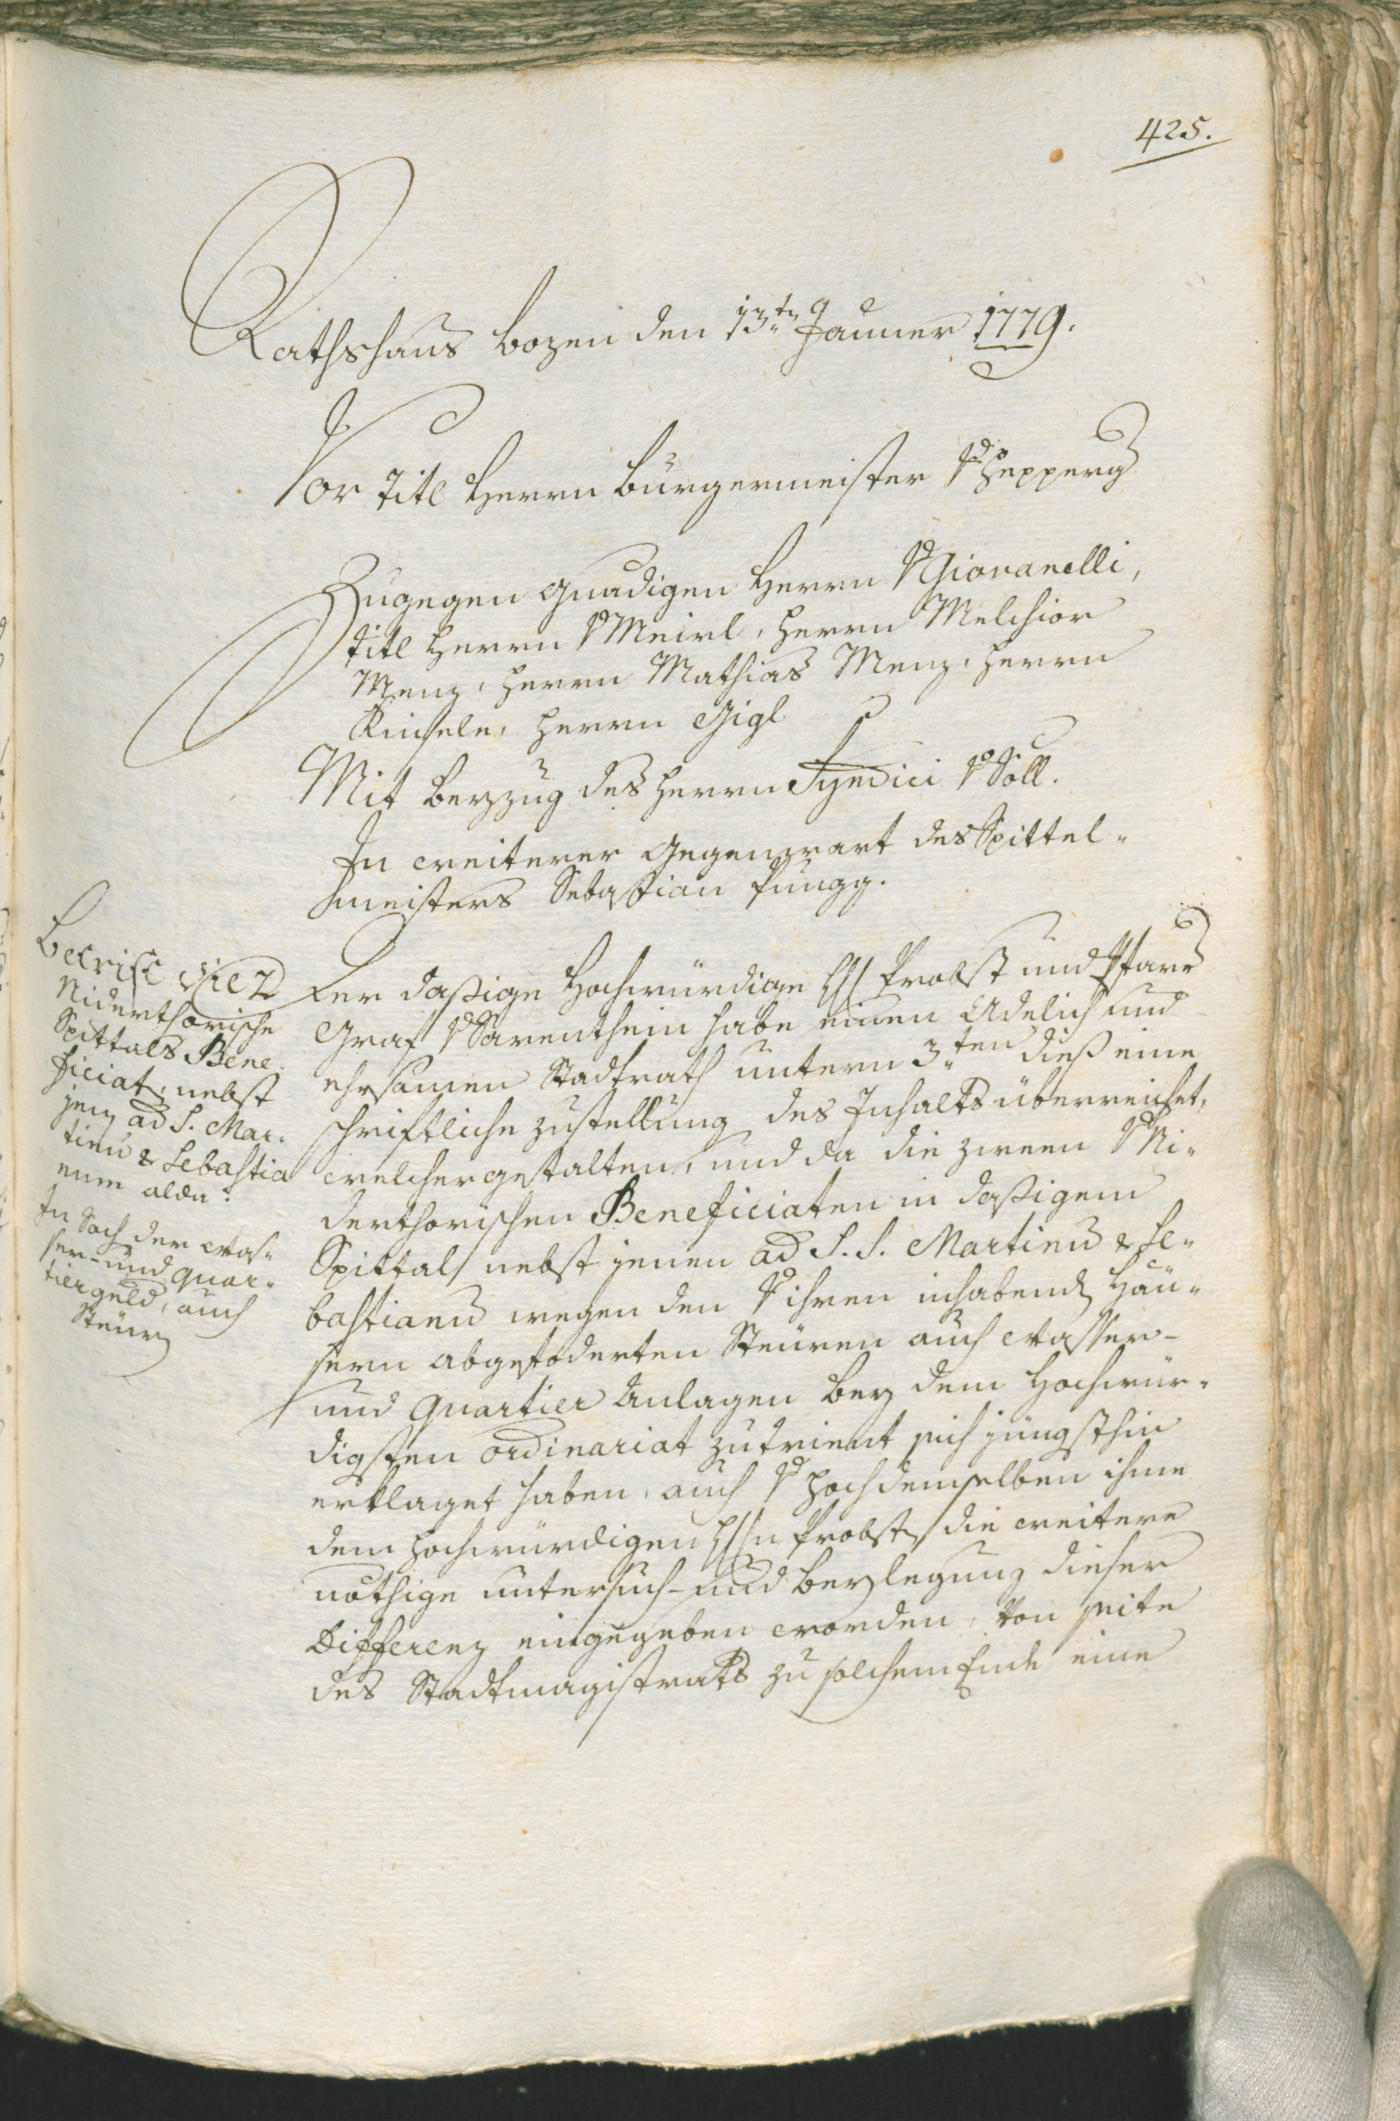 425.
Rathshaus bozen den 13.ten Jauner 1779.
Vor Titl Herrn Bürgermeister v Hepperg
Zugegen gnädigen Herrn v Giovanelli,
titl Herrn v Meirl, Herrn Melchior
Menz, Herrn Mathias Menz, Herrn
Kinsele, Herrn Gigl
Mit Beyzug des Herrn Syndici v Söll.
In weiterer Gegenwart des Spittel-
meisters Sebastian Pungg.
Betrift die 2
Niderthorische
Spittals Bene-
ficiat, nebst
jenz ad S. Mar-
tinu & Sebastia
num alda:
In Sach der Was-
ser- und quar-
tiergeld, auch
Steürn
Der daßige Hochwürdige Probst und Pfarr
Graf v Sarenthein habe einen Adelich und
ehrsamen Stadtrath untern 3.ten dieß eine
schriftliche zustellung des Inhalts überreichet,
welchergestalten, und da die zween v Ni-
derthorischen Beneficiaten in daßigem
Spittal nebst jenen ad S. S. Martinu & Se-
bastianu wegen den v ihren inhabend Häu-
sern abgefoderten Steüren auch Wasser-
und quartier Anlagen bey dem Hochwür-
digsten ordinariat zu trient sich jüngsthin
erklaget haben, auch v hochdemselben ihme
dem hochwürdigen Probst die weitere
nöthige untersuch- und beylegung dieser
Differenz eingegeben worden, von seite
des Stadtmagistrats zu solchem Ende eine